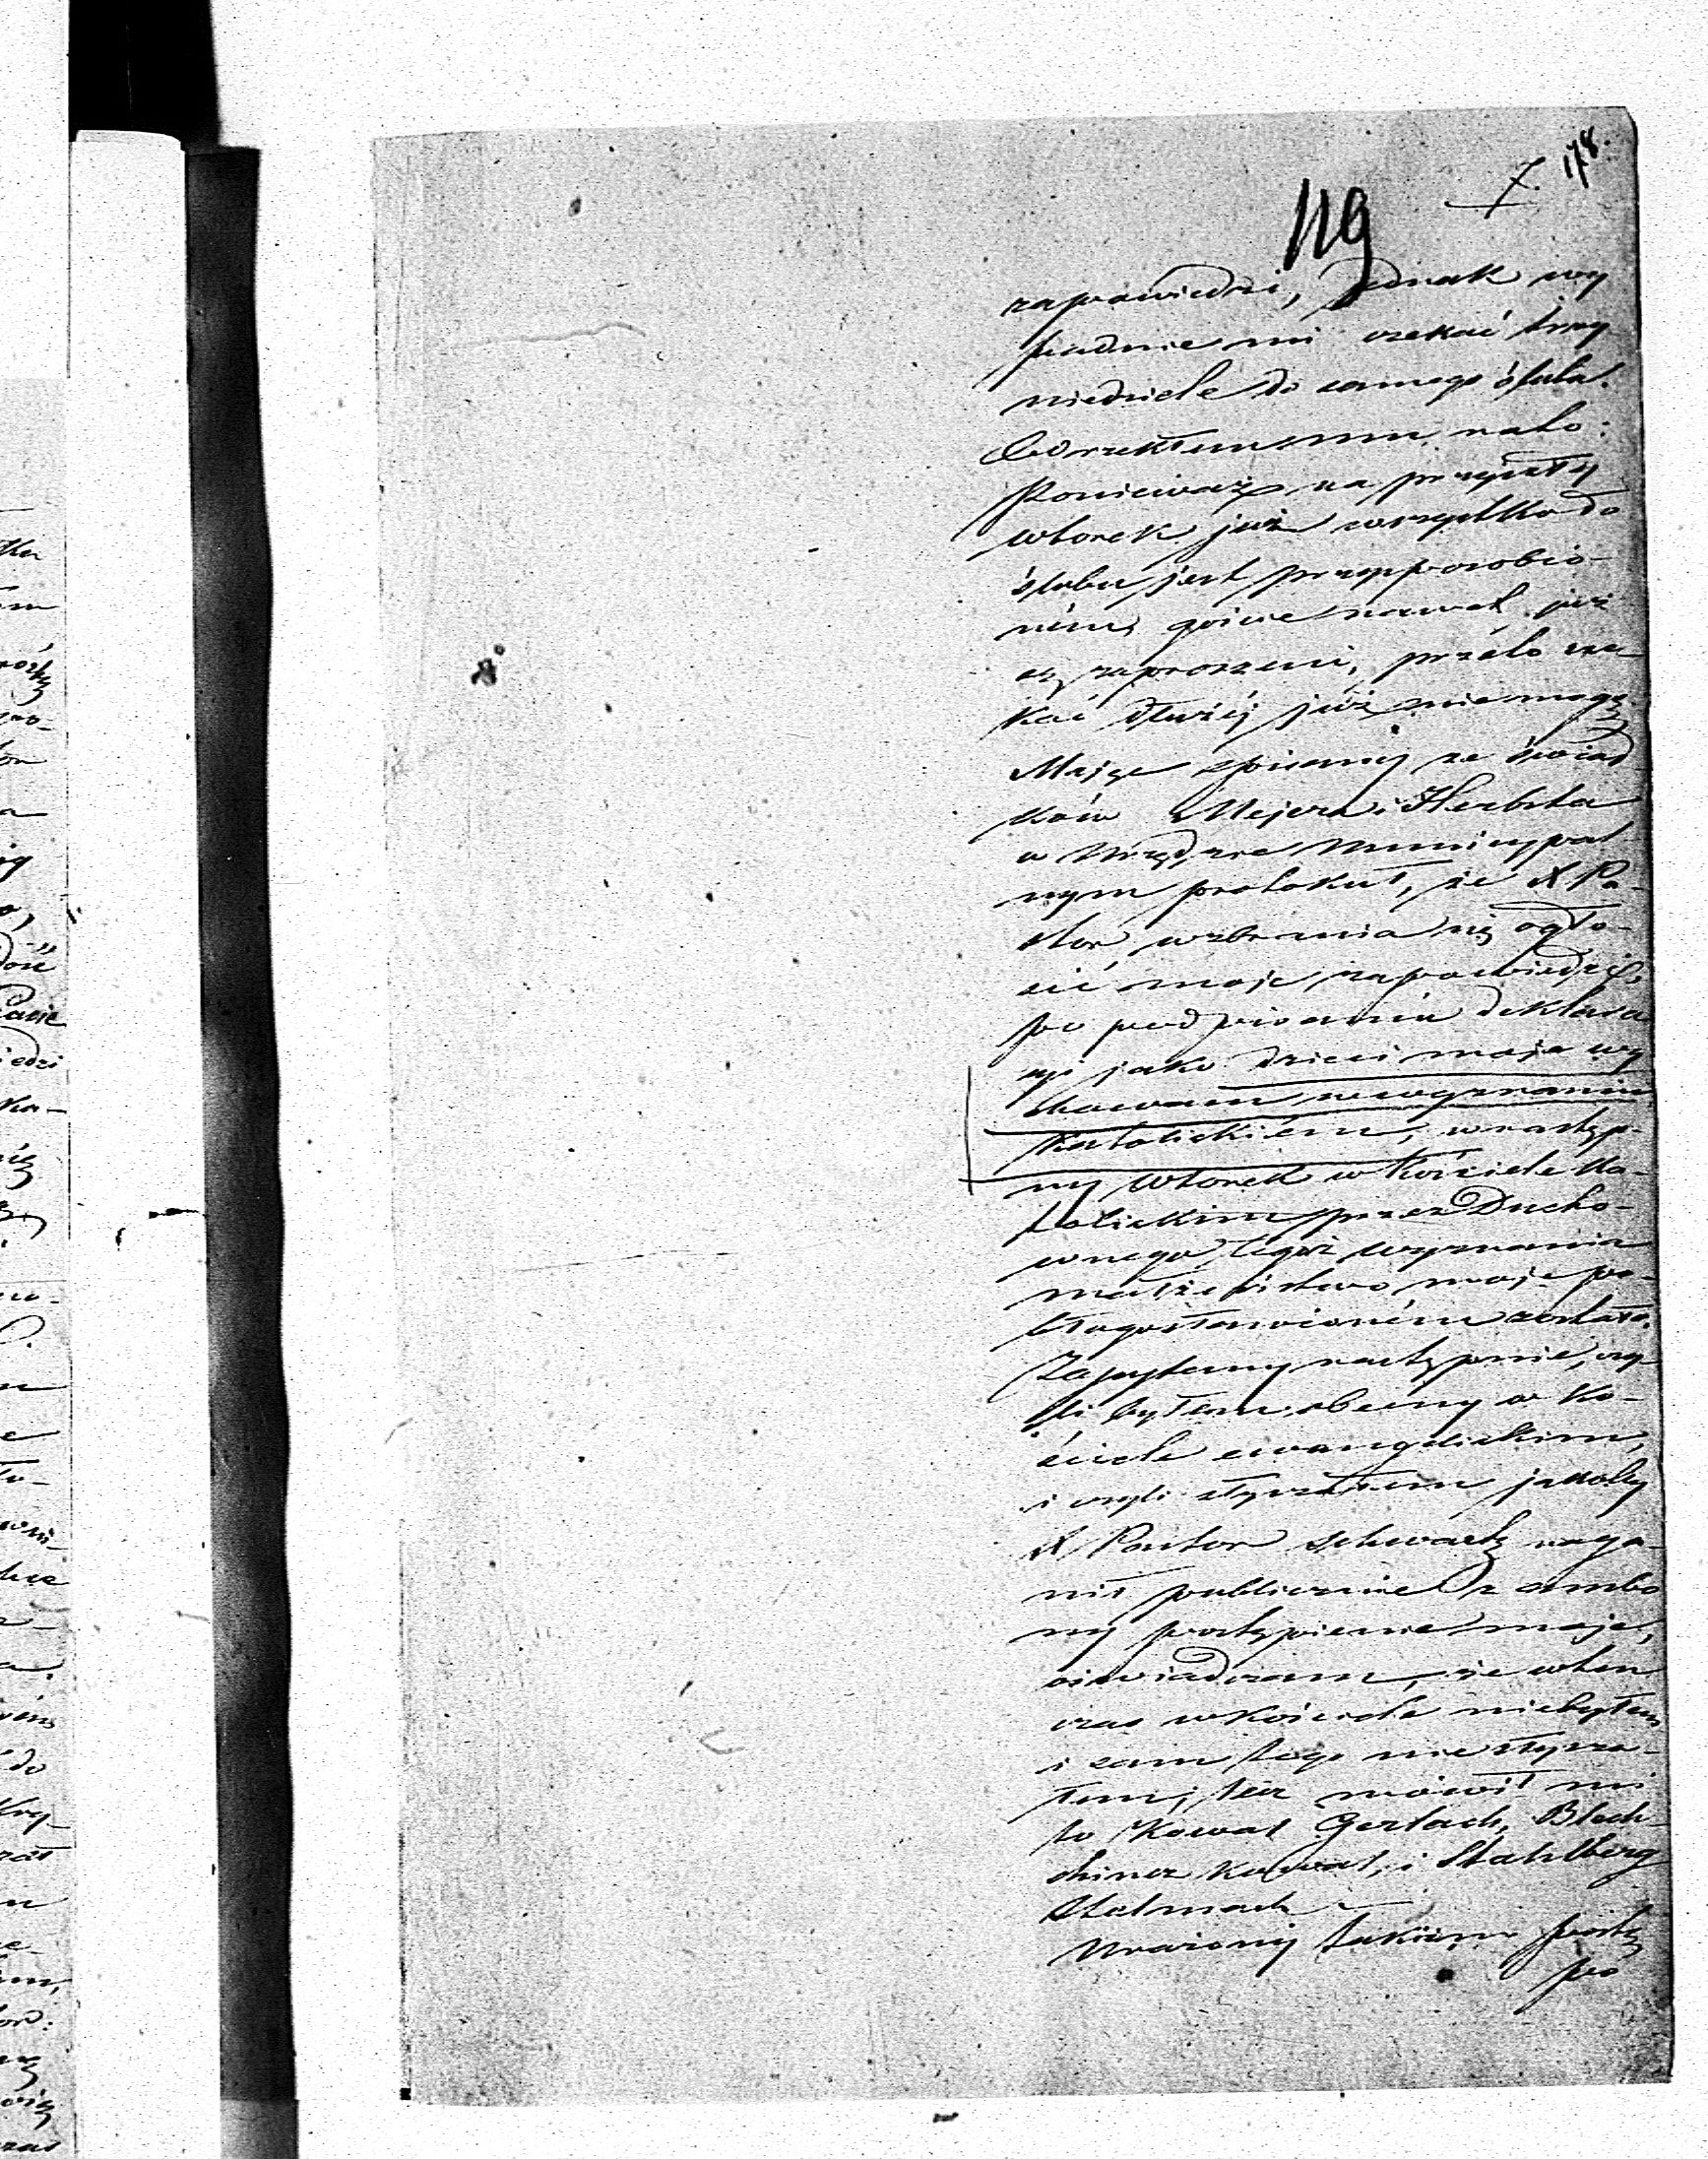 178.
7.
119
zapowiedzi, jednak wy
padnie mi czekać trzy
niedziele do samego ślubu.
Odrzekłem mu na to:
Ponieważ na przyszły
wtorek już wszystko do
ślubu jest przysposobio-
ném, goście nawet już
są zaproszeni, przéto cze-
kać dłużéj już nie mogę.
Mając spisany ze świad
ków Mejera i Herbsta
w Urzędzie Municypal
nym protokuł, że X Pa-
stor wzbrania się ogło-
sić moje zapowiedzi,
po podpisaniu deklara
cyi jako dzieci moje wy
chowam w wyznaniu
Katolickiém, w następ-
ny wtorek w Kościele Ka-
tolickim przez Ducho-
wnego tegoż wyznania
małżeństwo moje po-
błogosławioném zostało.
Zapytany następnie, czy-
li byłem obecny w Ko-
ściele ewangelickim,
i czyli słyszałem jakoby
X Pastor Schwartz naga-
nił publicznie z ambo
ny postąpienie moje,
oświadczam, że wten
czas w kościele nie byłem
i sam tego nie słysza-
łem; lecz mówił mi
to Kowal Gerlach, Blech-
kowal, i Stahlberg
Stelmach
Urażony takiém postę
po